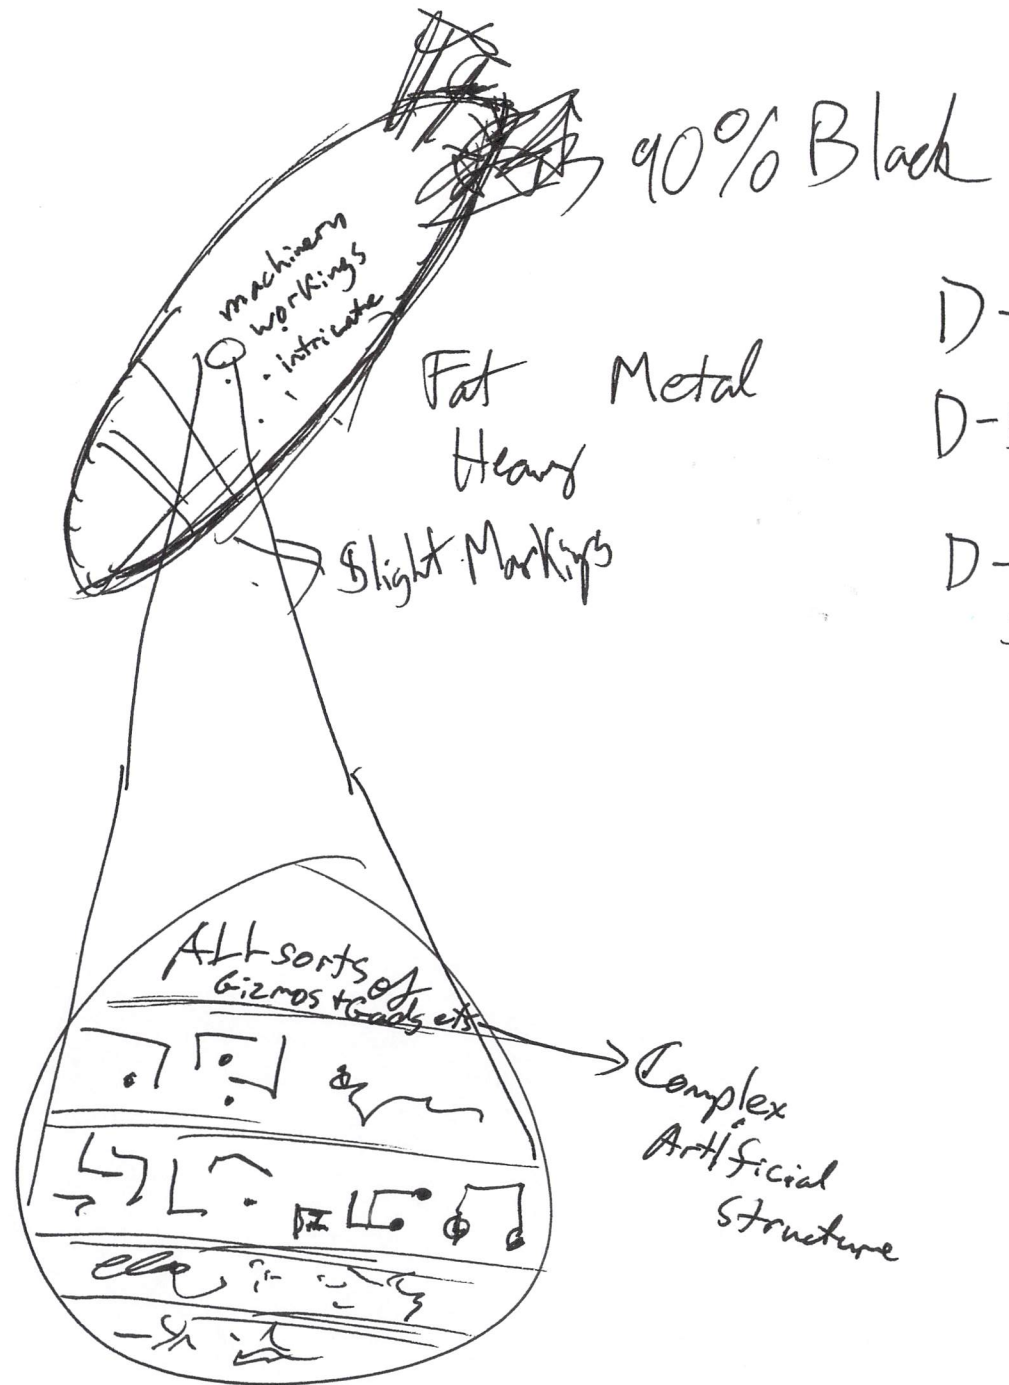 90% Black
machinery
workings
intricate
D-
Fat Metal
D-
Heavy
Slight Markings
D-
ALL sorts of
Gizmos + Gadgets
Complex
Artificial
Structure